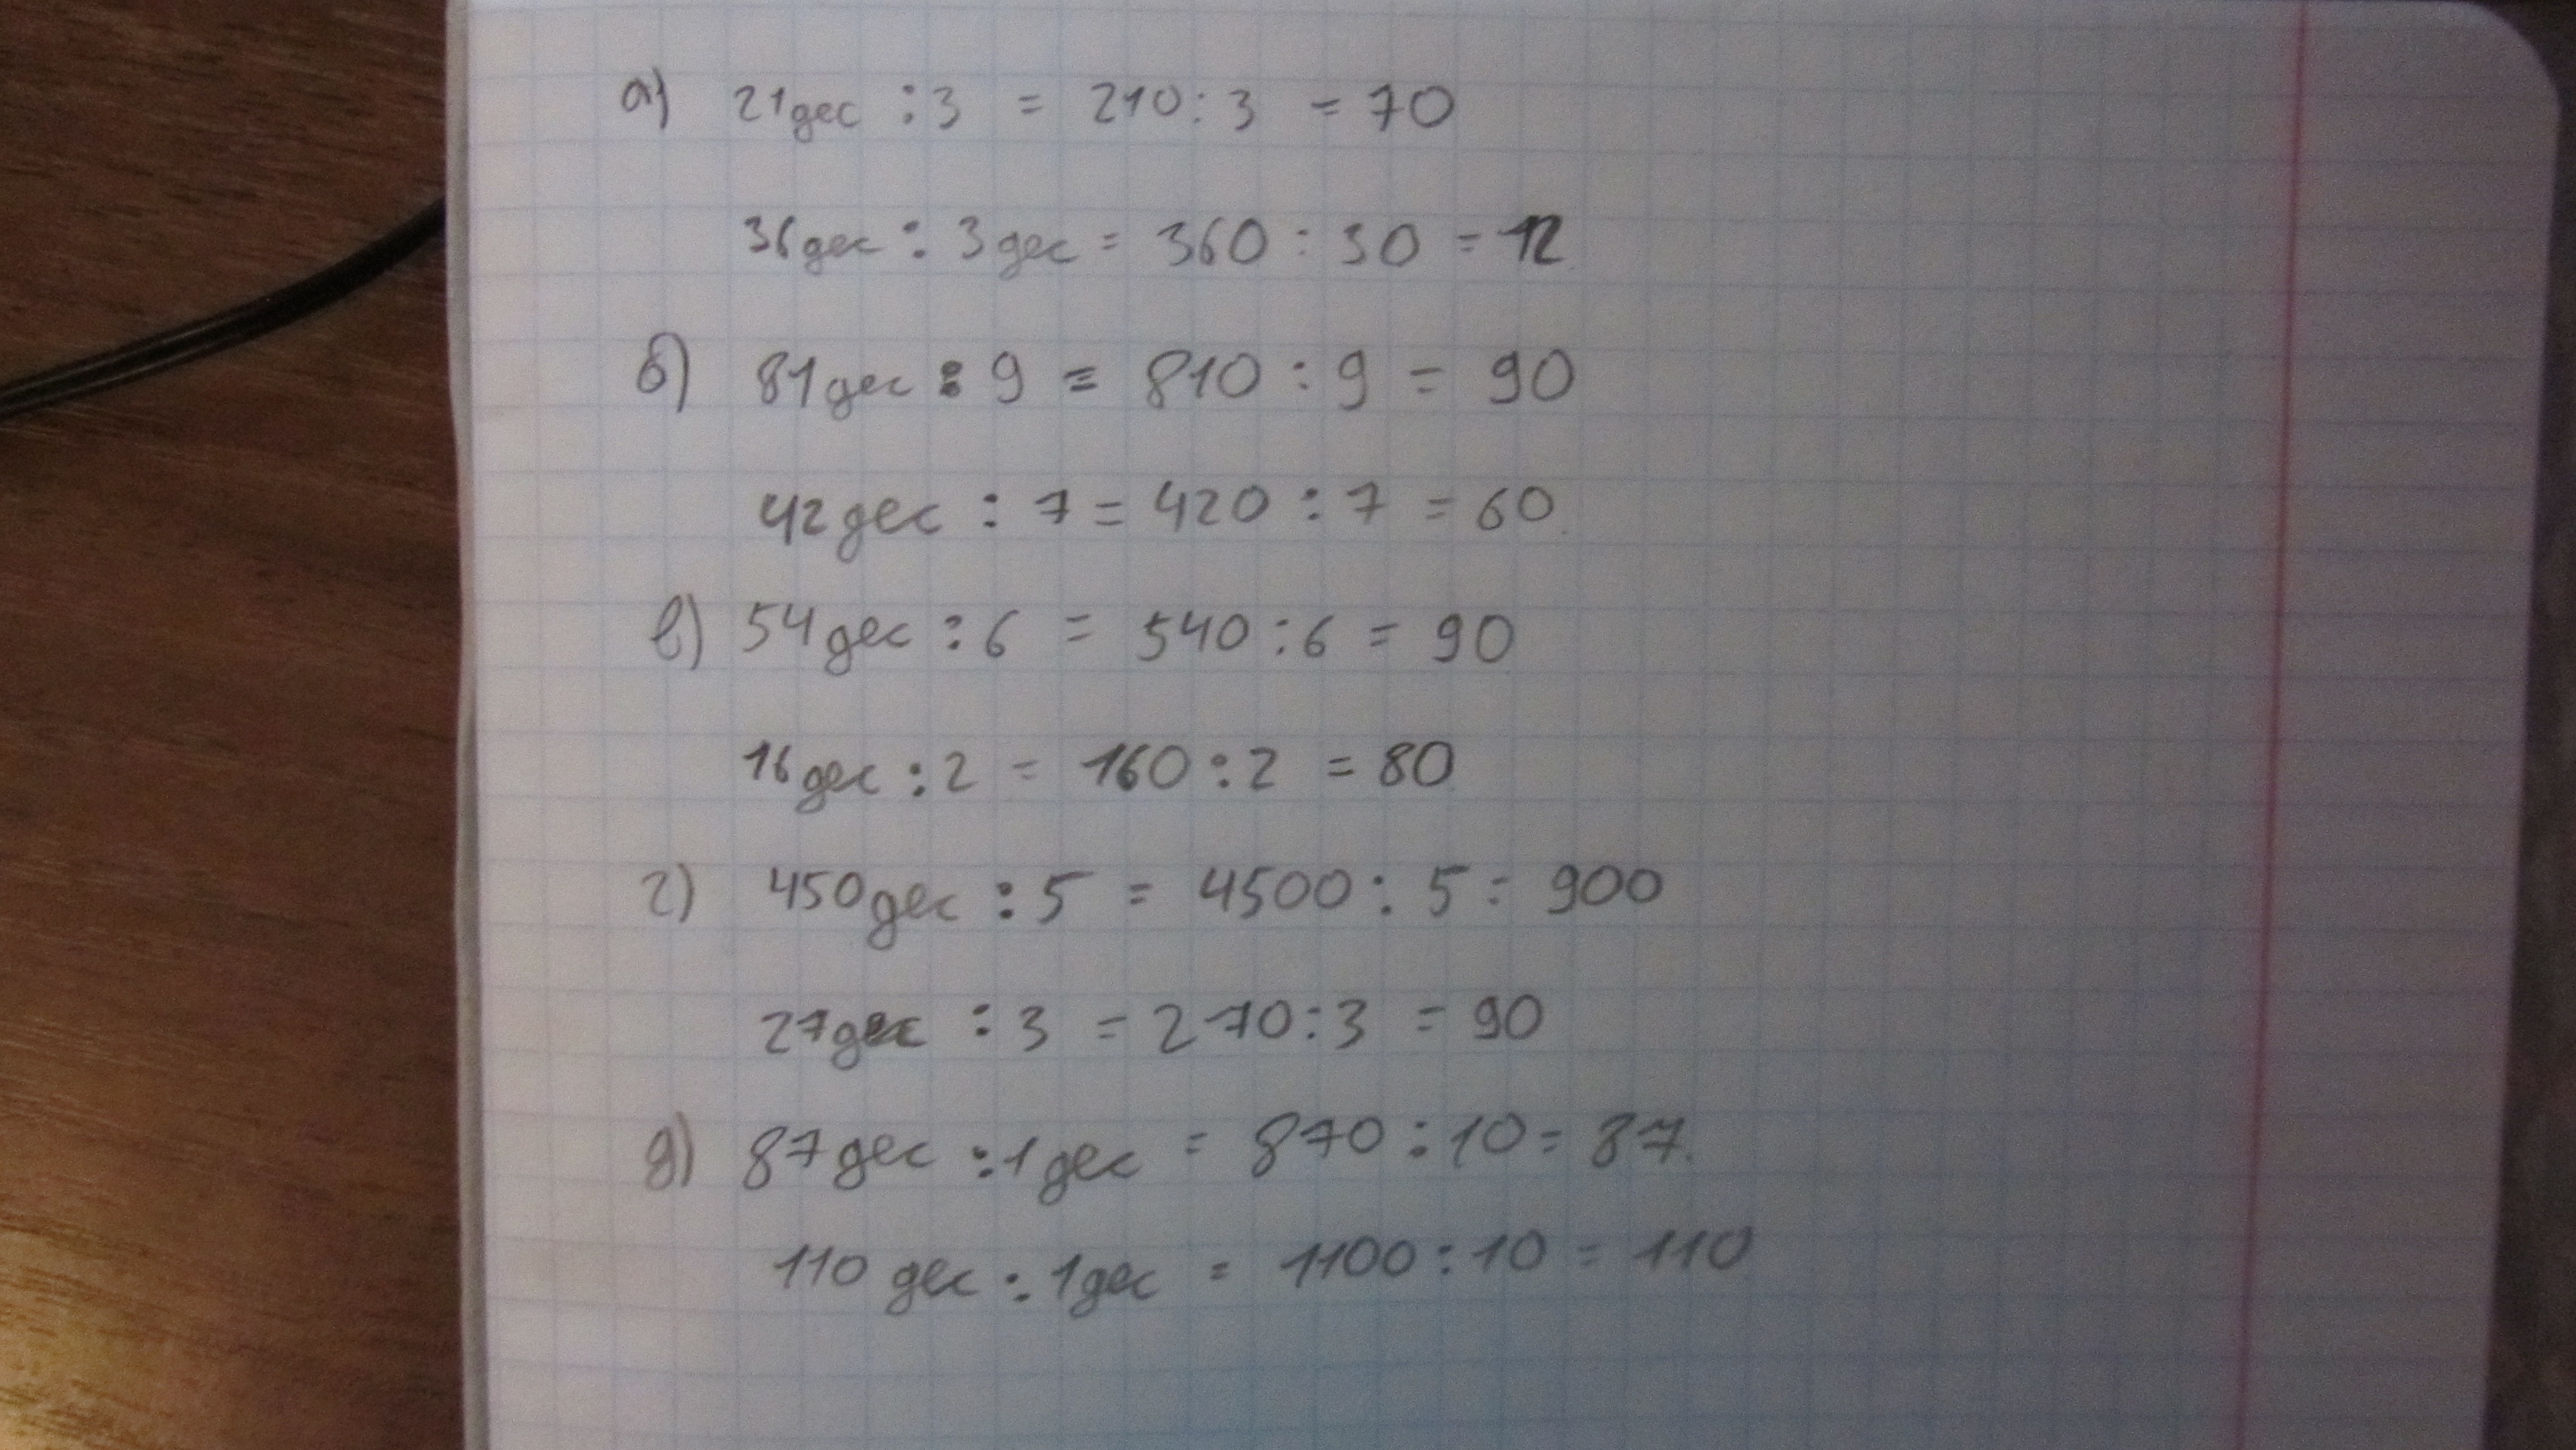 а) 21дес : 3 = 210 : 3 = 70
36дес : 3дес = 360 : 30 = 12
б) 81дес : 9 = 810 : 9 = 90
42дес : 7 = 420 : 7 = 60
в) 54дес : 6 = 540 : 6 = 90
16дес : 2 = 160 : 2 = 80
г) 450дес : 5 = 4500 : 5 = 900
27дес : 3 = 270 : 3 = 90
д) 87дес : 1дес = 870 : 10 = 87.
110 дес : 1дес = 1100 : 10 = 110